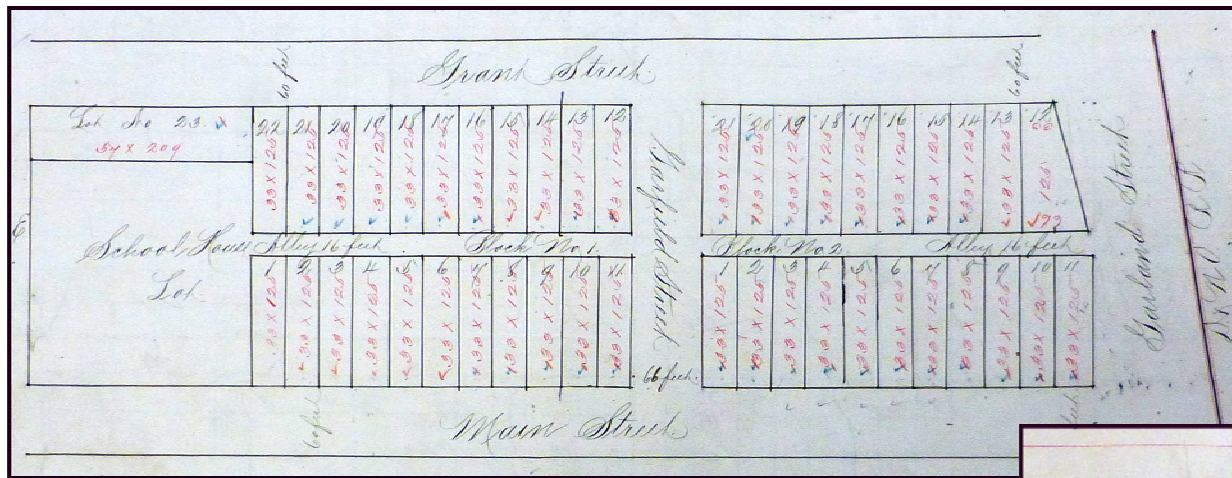 60 feet
60 feet
Grant Street
Lot No 23.
54 x 209
22 21 20 19 18 17 16 15 14 13 12
33 x 125 33 x 125 33 x 125 33 x 125 33 x 125 33 x 125 33 x 125 33 x 125 33 x 125 33 x 125 33 x 125
21 20 19 18 17 16 15 14 13 12
33 x 125 33 x 125 33 x 125 33 x 125 33 x 125 33 x 125 33 x 125 33 x 125 33 x 125 125
Garfield Street
Garland Street
School House
Lot
Alley 16 feet
Block No 1.
Block No 2
Alley 16 feet
1 2 3 4 5 6 7 8 9 10 11
33 x 125 33 x 125 33 x 125 33 x 125 33 x 125 33 x 125 33 x 125 33 x 125 33 x 125 33 x 125 33 x 125
1 2 3 4 5 6 7 8 9 10 11
33 x 125 33 x 125 33 x 125 33 x 125 33 x 125 33 x 125 33 x 125 33 x 125 33 x 125 33 x 125 33 x 125
66 feet
60 feet
feet
Main Street